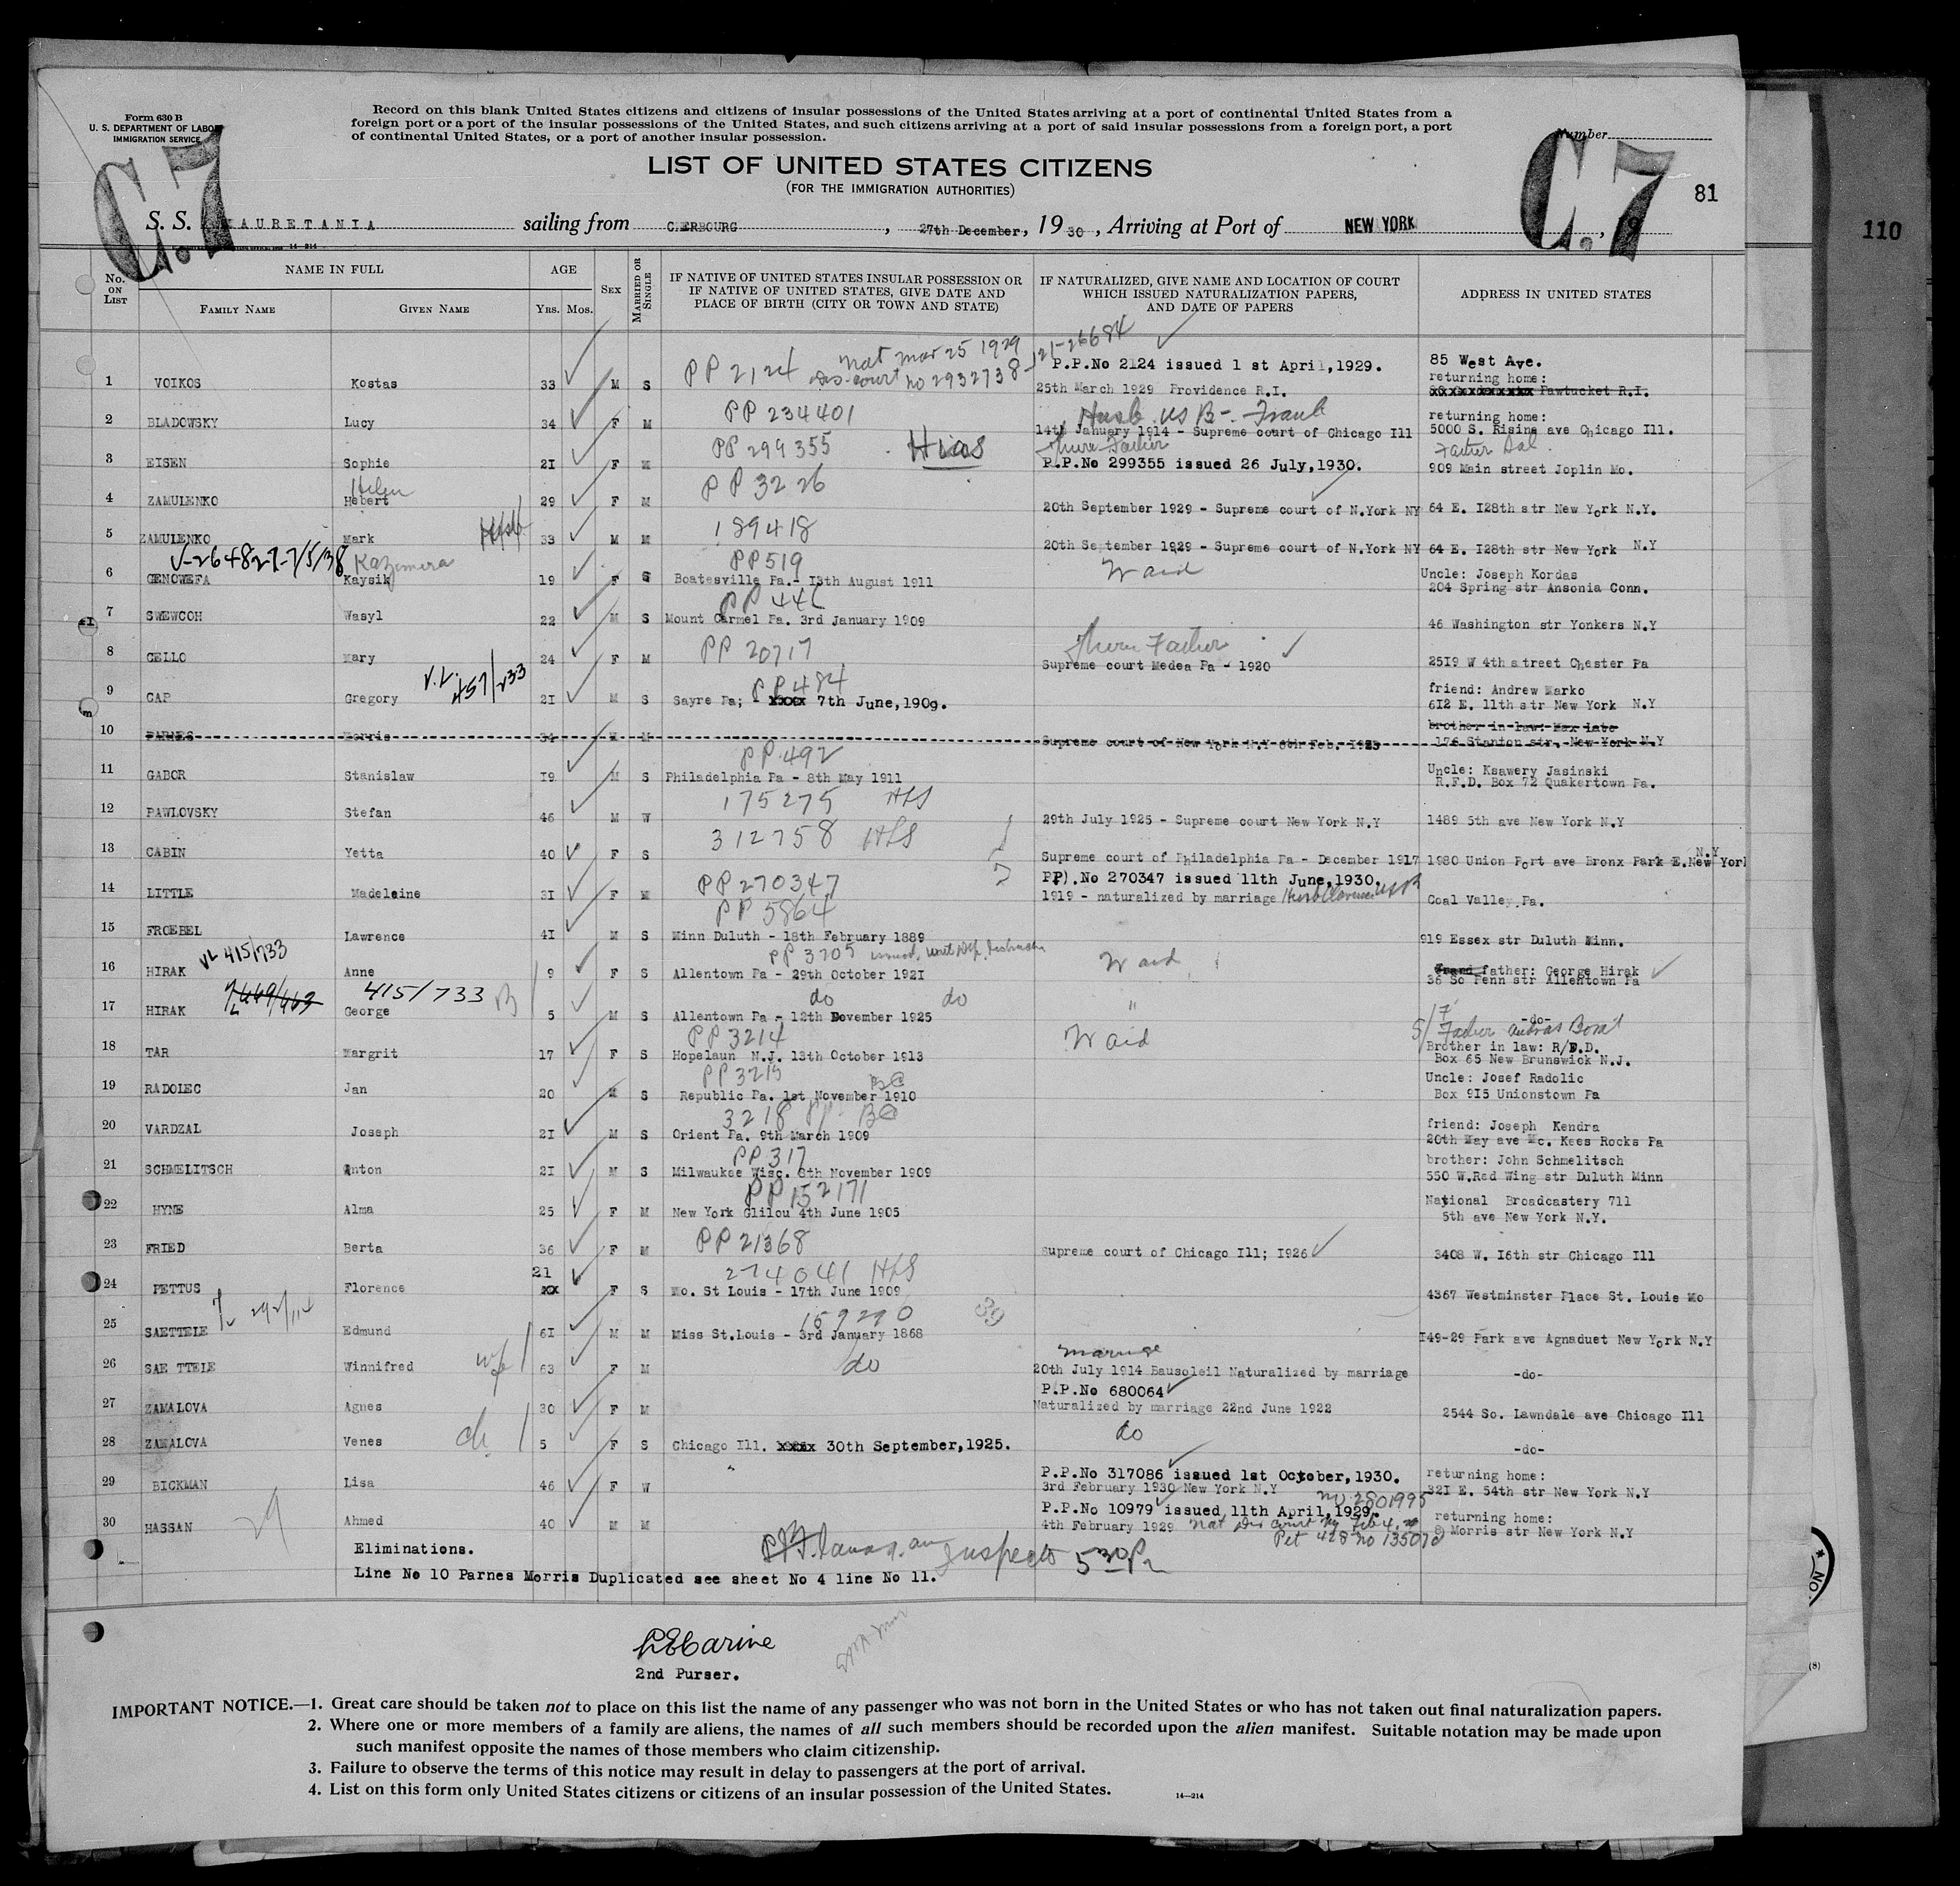 Form 630 B
U. S. DEPARTMENT OF LABOR
IMMIGRATION SERVICE
Record on this blank United States citizens and citizens of insular possessions of the United States arriving at a port of continental United States from a
foreign port or a port of the insular possessions of the United States, and such citizens arriving at a port of said insular possessions from a foreign port, a port
of continental United States, or a port of another insular possession.
Number
C.7 C.7
LIST OF UNITED STATES CITIZENS
(FOR THE IMMIGRATION AUTHORITIES)
81
110
S. S. MAURETANIA sailing from CHERBOURG, 27th December, 1930, Arriving at Port of NEW YORK, 19
14-214
No. ON LIST
NAME IN FULL
FAMILY NAME GIVEN NAME
AGE
YRS. MOS.
SEX
MARRIED OR SINGLE
IF NATIVE OF UNITED STATES INSULAR POSSESSION OR
IF NATIVE OF UNITED STATES, GIVE DATE AND
PLACE OF BIRTH (CITY OR TOWN AND STATE)
IF NATURALIZED, GIVE NAME AND LOCATION OF COURT
WHICH ISSUED NATURALIZATION PAPERS,
AND DATE OF PAPERS
ADDRESS IN UNITED STATES
PP 2124 Nat Mar 25 1929 Dis. court No 2932738 - 121-26684
P.P.No 2124 issued 1 st April,1929. 85 West Ave.
returning home:
1 VOIKOS Kostas 33 M S 25th March 1929 Providence R.I. Pawtucket R.I.
PP 234401 Husb US B - Frank returning home:
2 BLADOWSKY Lucy 34 F M 14th January 1914 - Supreme court of Chicago Ill 5000 S. Rising ave Chicago Ill.
PP 299355 Hias thru Father Father Sol
3 EISEN Sophie 2I F M P.P.No 299355 issued 26 July,1930. 909 Main street Joplin Mo.
Helen PP 3226
4 ZAMULENKO Hebert 29 F M 20th September 1929 - Supreme court of N.York NY 64 E. I28th str New York N.Y.
189418
5 ZAMULENKO Mark 33 M M 20th September 1929 - Supreme court of N.York NY 64 E. I28th str New York N.Y
V-264827-7/5/38 Kazimera PP 519 Waid Uncle: Joseph Kordas
6 GENOWEFA Kaysik 19 F S Boatesville Pa.- I3th August 1911 204 Spring str Ansonia Conn.
7 SWEWCOH Wasyl 22 M S Mount Carmel Pa. 3rd January 1909 46 Washington str Yonkers N.Y
PP 20717 thru Father
8 CELLO Mary 24 F M Supreme court Medea Pa - 1920 25I9 W 4th street Chester Pa
V.L. 457/233 PP 484 friend: Andrew Marko
9 CAP Gregory 2I M S Sayre Pa; xxxx 7th June,1909. 6I2 E. 11th str New York N.Y
brother in law: Max late
10 PARNES Morris 34 M M Supreme court of New York N.Y 6th Feb. I923 176 Stanton str. New York N.Y
PP 492 Uncle: Ksawery Jasinski
11 GABOR Stanislaw I9 M S Philadelphia Pa - 8th May 1911 R.F.D. Box 72 Quakertown Pa.
175275 HLS
12 PAWLOVSKY Stefan 46 M W 29th July 1925 - Supreme court New York N.Y 1489 5th ave New York N.Y
312758 HLS
13 CABIN Yetta 40 F S Supreme court of Philadelphia Pa - December 1917 1980 Union Port ave Bronx Park E.New York N.Y
PP 270347 PP).No 270347 issued 11th June,1930.
14 LITTLE Madeleine 3I F M 1919 - naturalized by marriage Husb Clarence US B Coal Valley.Pa.
PP 5864
15 FROEBEL Lawrence 4I M S Minn Duluth - 18th February 1889 919 Essex str Duluth Minn.
VL 415/733 PP 3205 Waid
16 HIRAK Anne 9 F S Allentown Pa - 29th October 192I Grand father: George Hirak
36 So Penn str Allentown Pa
415/733 B do do "
17 HIRAK George 5 M S Allentown Pa - 12th November 1925 -do-
PP 3214 Waid
18 TAR Margrit 17 F S Hopelaun N.J. 13th October 1913 Brother in law: R/F.D.
Box 65 New Brunswick N.J.
PP 3215 BC Uncle: Josef Radolic
19 RADOIEC Jan 20 M S Republic Pa. 1st November 1910 Box 9I5 Unionstown Pa
3218 PP. BC friend: Joseph Kendra
20 VARDZAL Joseph 2I M S Orient Pa. 9th March 1909 20th May ave Mc. Kees Rocks Pa
PP 317 brother: John Schmelitsch
21 SCHMELITSCH Anton 2I M S Milwaukee Wisc. 6th November 1909 550 W.Red Wing str Duluth Minn
PP 152171 National Broadcastery 711
22 HYNE Alma 25 F M New York Glilou 4th June 1905 5th ave New York N.Y.
PP 21368
23 FRIED Berta 36 F M Supreme court of Chicago Ill; I926 3408 W. I6th str Chicago Ill
21 274041 HLS
24 PETTUS Florence xx F S Mo. St Louis - 17th June 1909 4367 Westminster Place St. Louis Mo
292/114 159290
25 SAETTELE Edmund 6I M M Miss St.Louis - 3rd January 1868 I49-29 Park ave Agnaduet New York N.Y
wf do marriage
26 SAE TTELE Winnifred 63 F M 20th July 1914 Bausoleil Naturalized by marriage -do-
P.P.No 680064
27 ZAMALOVA Agnes 30 F M Naturalized by marriage 22nd June 1922 2544 So. Lawndale ave Chicago Ill
ch do
28 ZAMALOVA Venes 5 F S Chicago Ill. xxxx 30th September,1925. -do-
P.P.No 317086 issued 1st October,1930. returning home:
29 BICKMAN Lisa 46 F W 3rd February 1930 New York N.Y 32I E. 54th str New York N.Y
No 2801995
P.P.No 10979 issued 11th April,1929. returning home:
30 HASSAN Ahmed 40 M M 4th February 1929 8 Morris str New York N.Y
Pet 428 No 135070
Eliminations.
Line No 10 Parnes Morris Duplicated see sheet No 4 line No 11.
2nd Purser.
IMPORTANT NOTICE.—1. Great care should be taken not to place on this list the name of any passenger who was not born in the United States or who has not taken out final naturalization papers.
2. Where one or more members of a family are aliens, the names of all such members should be recorded upon the alien manifest. Suitable notation may be made upon
such manifest opposite the names of those members who claim citizenship.
3. Failure to observe the terms of this notice may result in delay to passengers at the port of arrival.
4. List on this form only United States citizens or citizens of an insular possession of the United States.
14—214
(8)